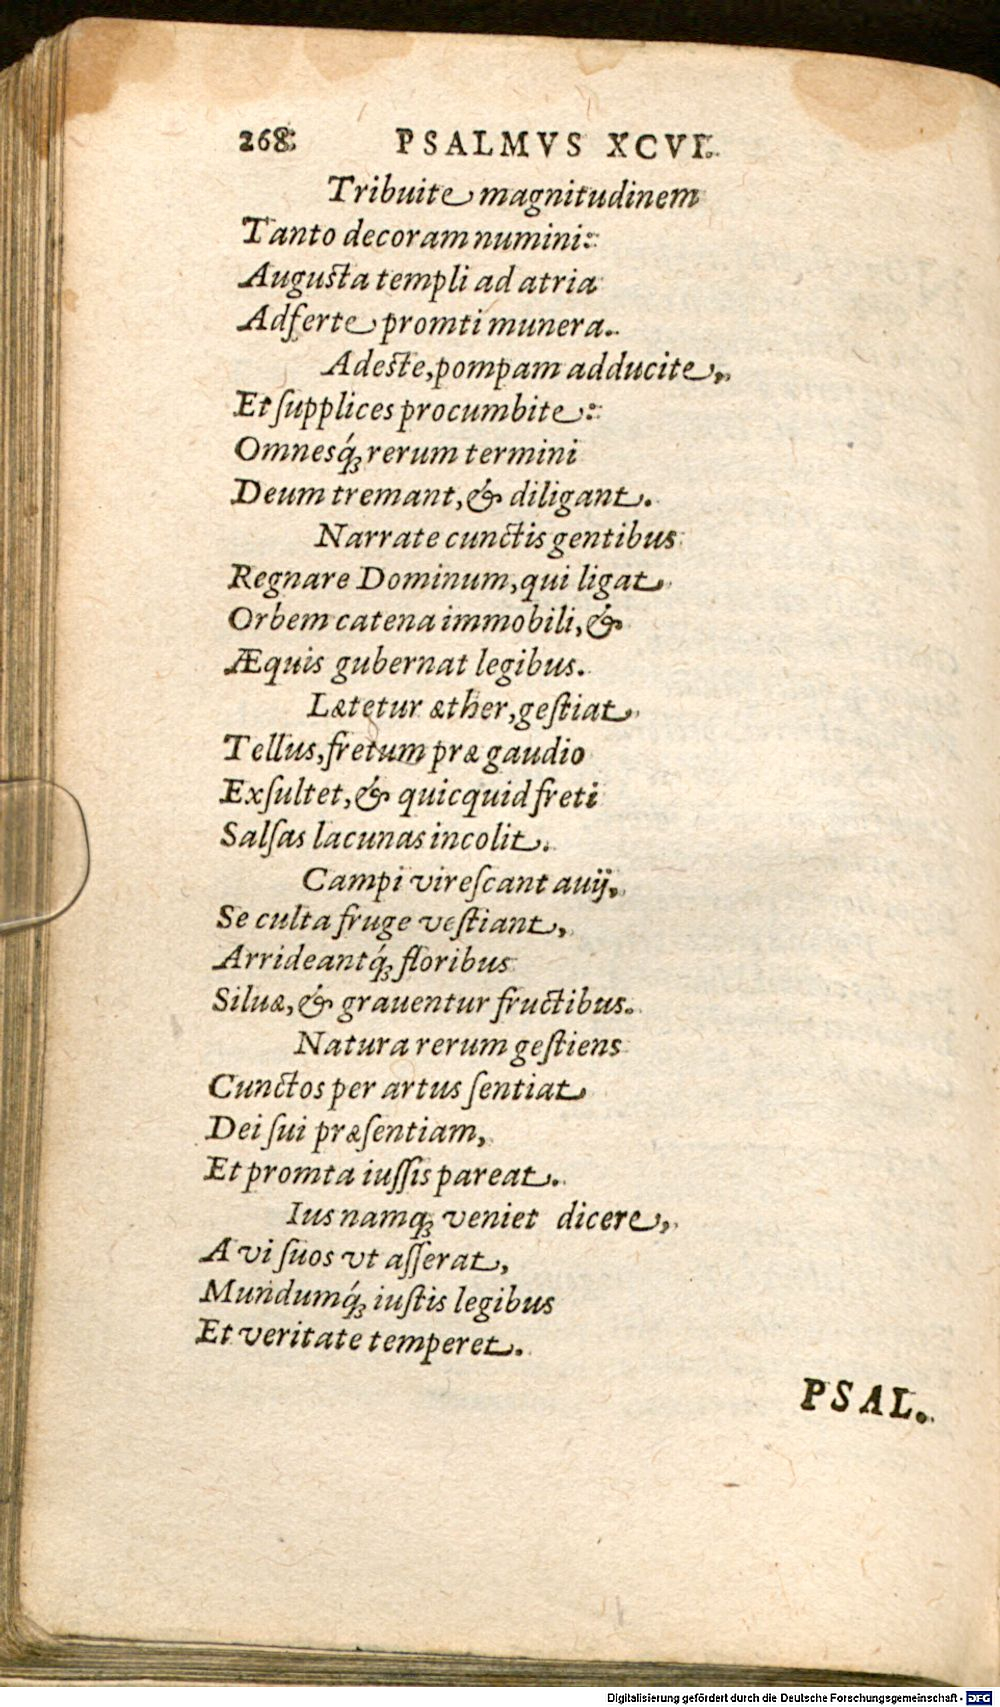 268 PSALMVS XCVI.
Tribuite magnitudinem
Tanto decoram numini:
Augusta templi ad atria
Adferte promti munera.
Adeste, pompam adducite,
Et ſupplices procumbite:
Omnesq́ꝫ rerum termini
Deum tremant, & diligant.
Narrate cunctis gentibus
Regnare Dominum, qui ligat
Orbem catena immobili, &
Æquis gubernat legibus.
Lætetur æther, geſtiat
Tellus, fretum præ gaudio
Exſultet, & quicquid freti
Salſas lacunas incolit.
Campi vireſcant auij,
Se culta fruge veſtiant,
Arrideantq́ꝫ floribus
Siluæ, & grauentur fructibus.
Natura rerum geſtiens
Cunctos per artus ſentiat
Dei ſui præſentiam,
Et promta iuſſis pareat.
Ius namqꝫ veniet dicere,
A vi ſuos vt aſſerat,
Mundumq́ꝫ iuſtis legibus
Et veritate temperet.
PSAL.
Digitalisierung gefördert durch die Deutsche Forschungsgemeinschaft - DFG